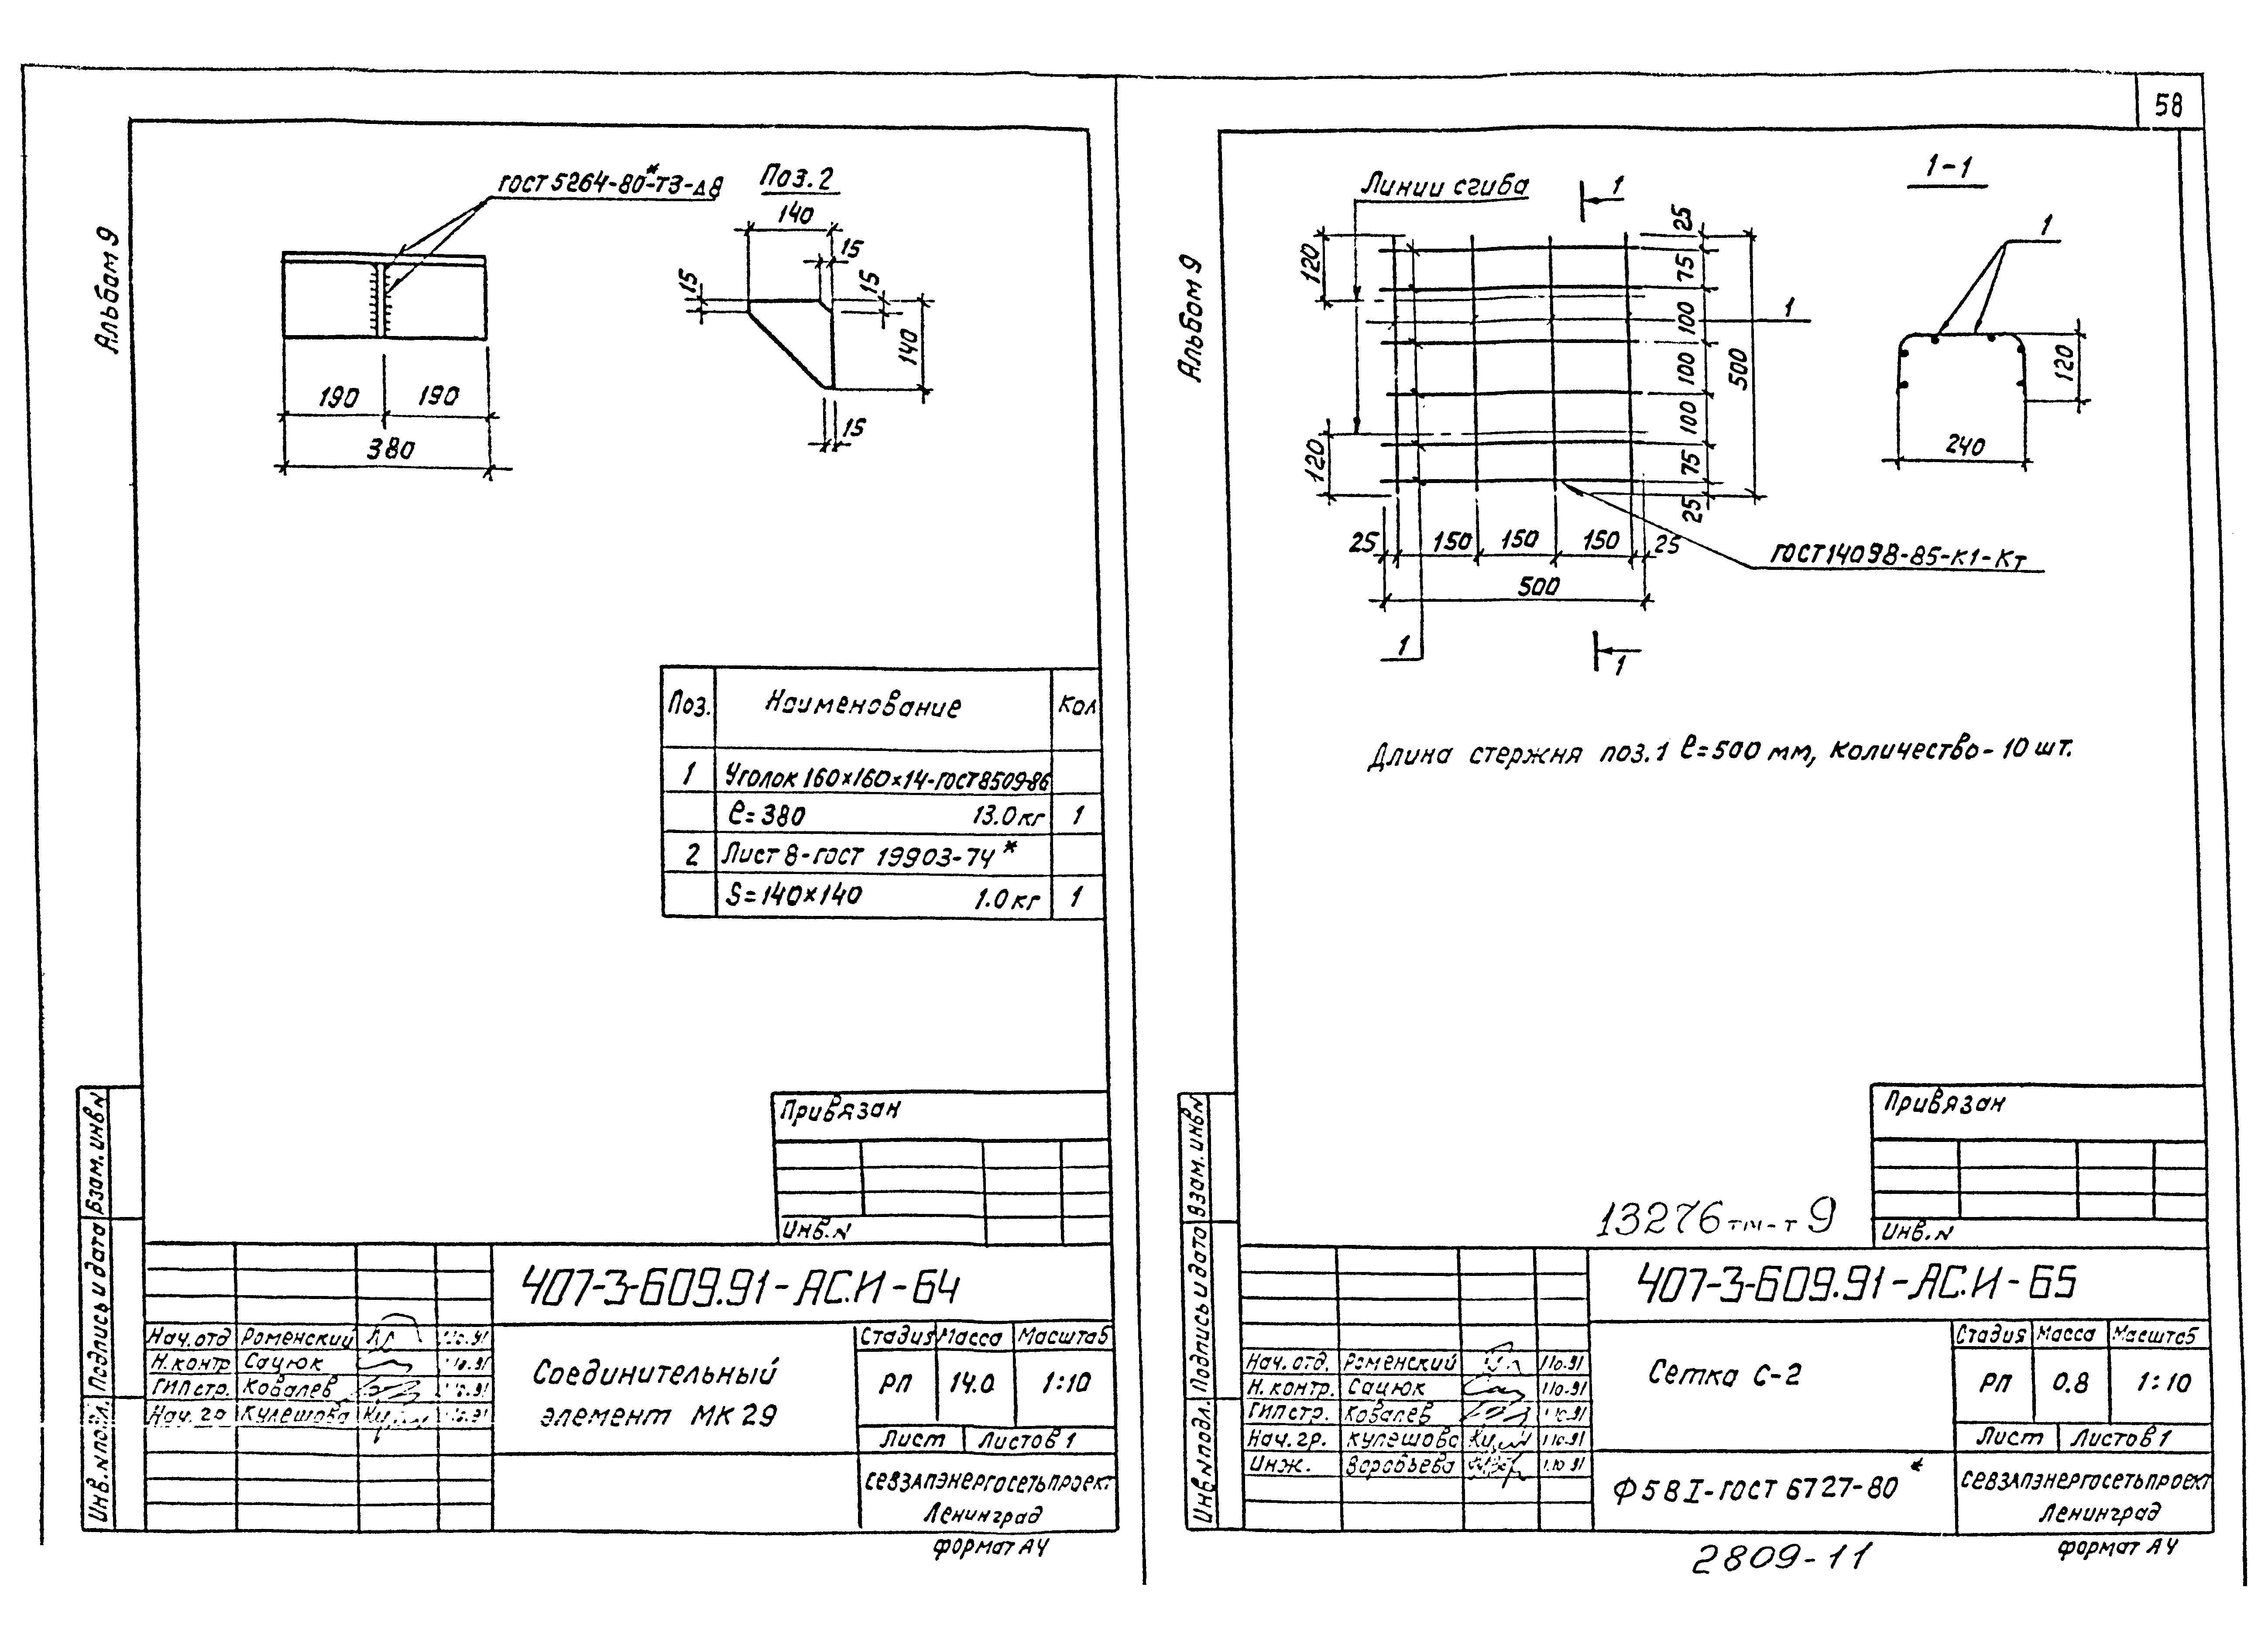 58
Альбом 9
ГОСТ 5264-80*-Т3-Δ8
Поз.2
140
15
15
15
140
15
190
190
380
Поз.
Наименование
Кол
1
Уголок 160×160×14-ГОСТ 8509-86
ℓ=380
13.0 кг
1
2
Лист 8-ГОСТ 19903-74*
S=140×140
1.0 кг
1
Привязан
Инв.N
407-3-609.91-АС.И-64
Нач.отд
Роменский
Н.контр
Сацюк
ГИП стр.
Ковалев
Нач.гр
Кулешова
Соединительный
элемент МК 29
Стадия
Масса
Масштаб
РП
14.0
1:10
Лист
Листов 1
СЕВЗАПЭНЕРГОСЕТЬПРОЕКТ
Ленинград
формат А4
Взам.инв N
Подпись и дата
Инв.N подл.
Альбом 9
Линии сгиба
1
1-1
25
75
100
100
100
75
25
500
120
120
1
1
120
240
25
150
150
150
25
500
ГОСТ 14098-85-К1-Кт
1
1
Длина стержня поз.1 ℓ=500 мм, количество-10 шт.
Привязан
Инв.N
13276тм-т9
407-3-609.91-АС.И-65
Нач.отд.
Роменский
110.91
Н.контр.
Сацюк
110.91
ГИП стр.
Ковалев
1.10.91
Нач.гр.
Кулешова
110.91
Инж.
Воробьева
1.10 91
Сетка С-2
Стадия
Масса
Масштаб
РП
0.8
1:10
Лист
Листов 1
Ф5ВI-ГОСТ 6727-80*
СЕВЗАПЭНЕРГОСЕТЬПРОЕКТ
Ленинград
формат А4
2809-11
Взам.инв N
Подпись и дата
Инв.N подл.